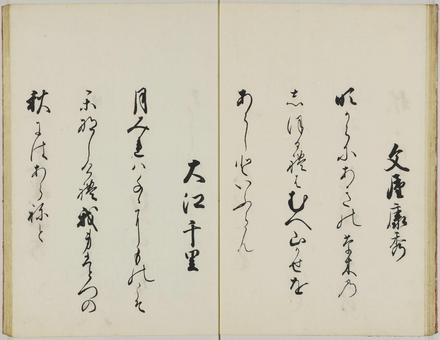 文屋康秀
吹からに あきの草木の
志ほるれは むへ山かせを
あらしといふらん
大江千里
月みれハ ちゝにものこそ
かなしけれ 我身ひとつの
秋にはあらねと